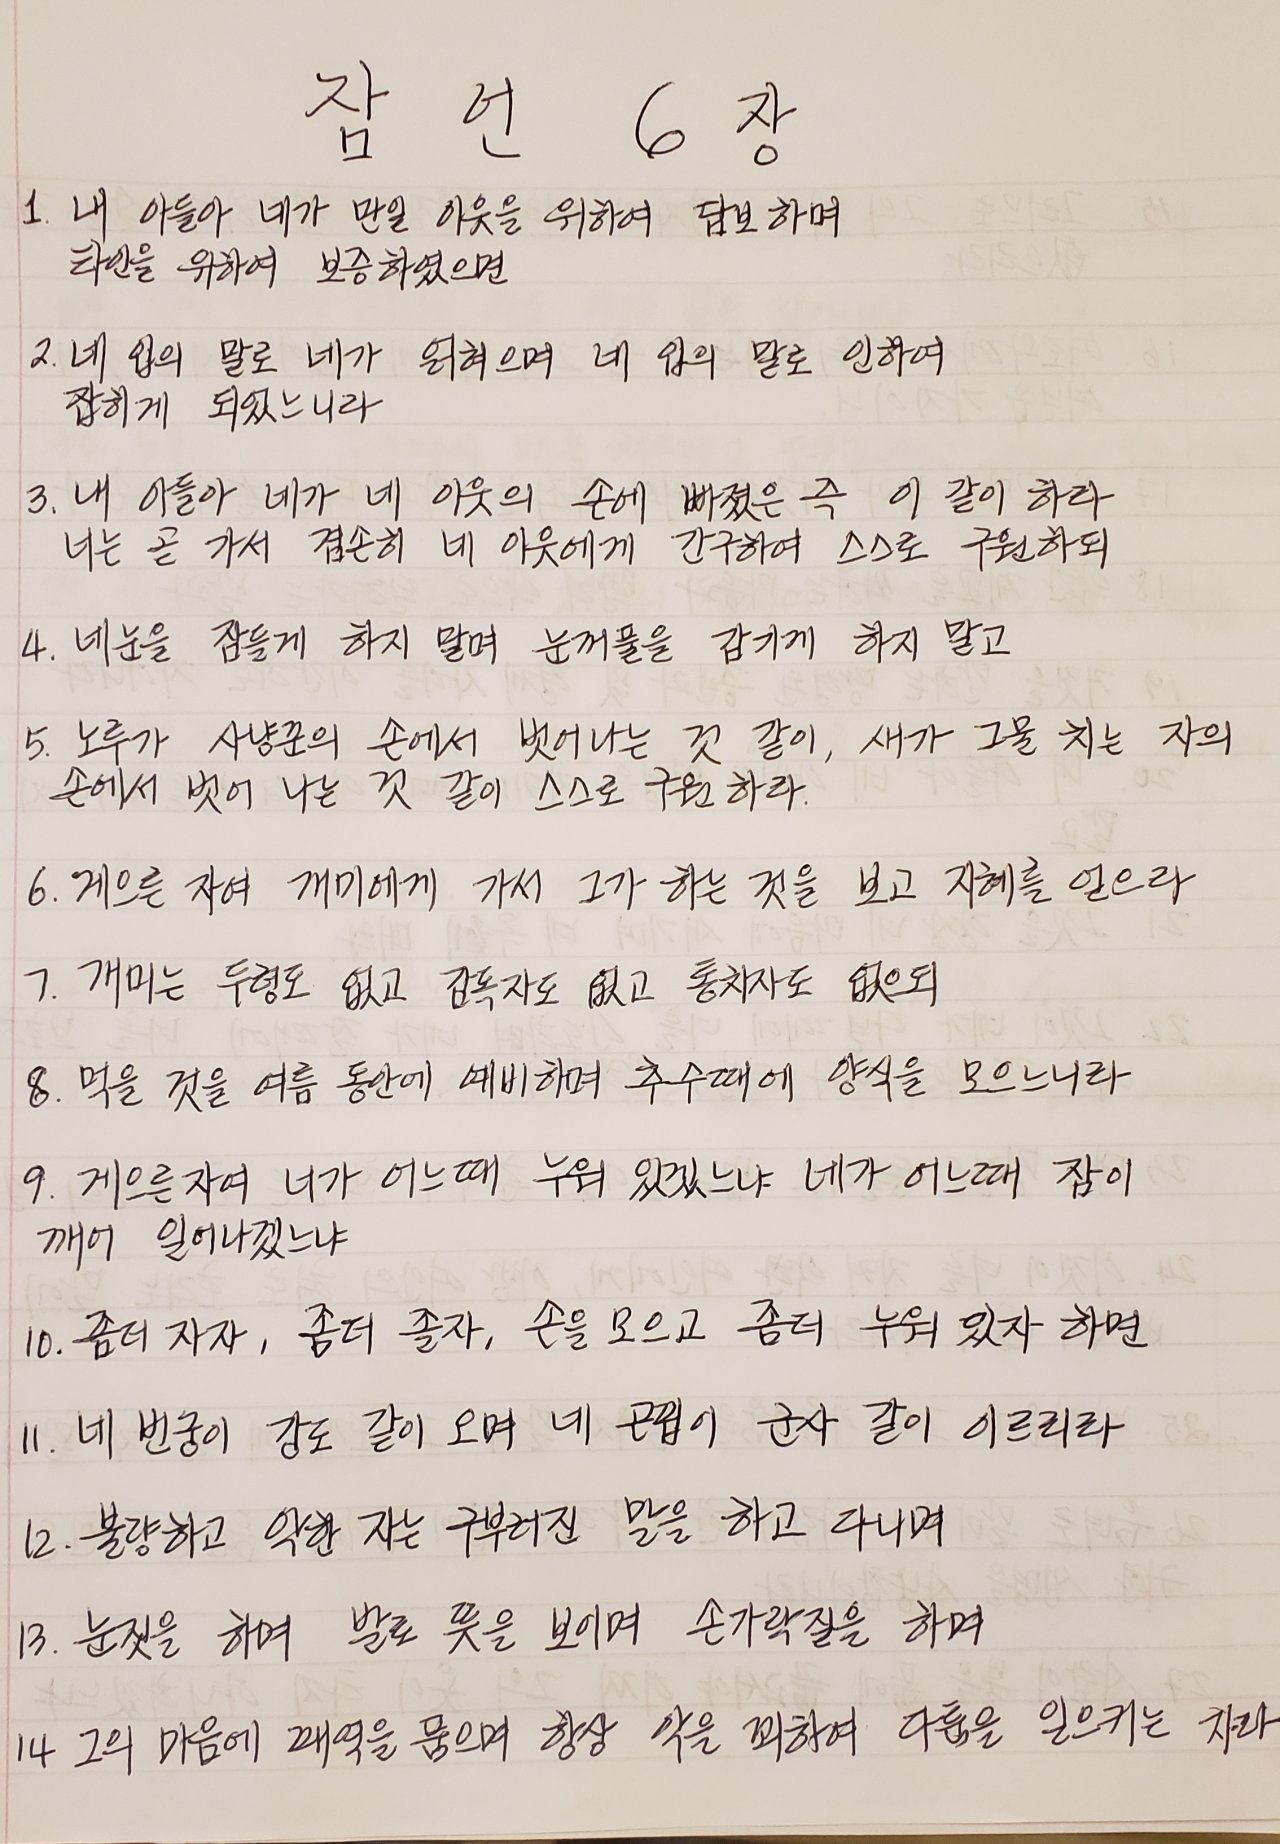 잠언 6장
1. 내 아들아 네가 만일 이웃을 위하여 담보하며
타인을 위하여 보증하였으면
2. 네 입의 말로 네가 얽혔으며 네 입의 말로 인하여
잡히게 되었느니라
3. 내 아들아 네가 네 이웃의 손에 빠졌은 즉 이 같이 하라
너는 곧 가서 겸손히 네 이웃에게 간구하여 스스로 구원하되
4. 네눈을 잠들게 하지 말며 눈꺼풀을 감기게 하지 말고
5. 노루가 사냥꾼의 손에서 벗어나는 것 같이, 새가 그물 치는 자의
손에서 벗어 나는 것 같이 스스로 구원하라.
6. 게으른 자여 개미에게 가서 그가 하는 것을 보고 지혜를 얻으라
7. 개미는 두령도 없고 감독자도 없고 통치자도 없으되
8. 먹을 것을 여름 동안에 예비하며 추수때에 양식을 모으느니라
9. 게으른자여 너가 어느때 누워 있겠느냐 네가 어느때 잠이
깨어 일어나겠느냐
10. 좀더 자자, 좀더 졸자, 손을 모으고 좀더 누워 있자 하면
11. 네 빈궁이 강도 같이 오며 네 곤핍이 군사 같이 이르리라
12. 불량하고 악한 자는 구부러진 말을 하고 다니며
13. 눈짓을 하며 발로 뜻을 보이며 손가락질을 하며
14 그의 마음에 패역을 품으며 항상 악을 꾀하여 다툼을 일으키는 자라